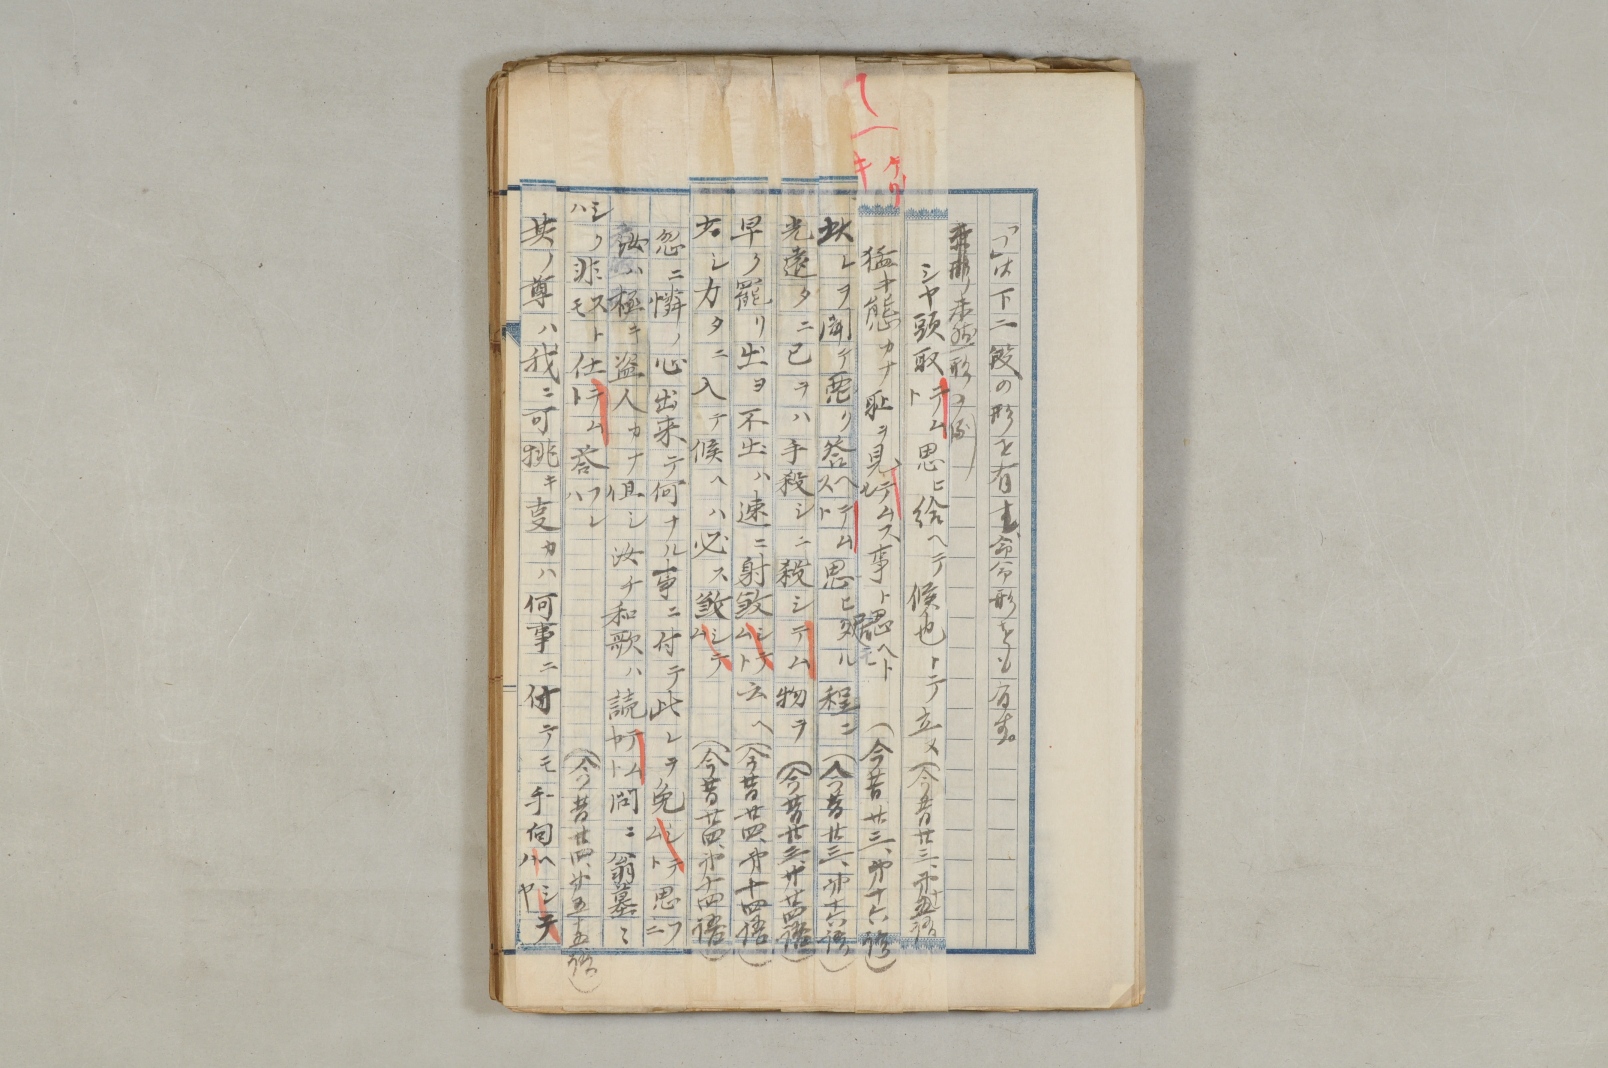 て
ー
キ
ケリ
「つ」は下二段の形を有し命令形をも有す。
未然形ノ例
シヤ頭取テムト思ヒ給ヘテ候也トテ立メ（今昔廿三、第十五語）
猛キ態カナ恥ヲ見セテムズ事ト思ヘトモ（今昔廿三、第十六語）
此レヲ聞テ悪ク答ヘテムズト思ヒケル程ニ（今昔廿三、第十六語）
光遠タニ己ヲハ手殺シニ殺シテム物ヲ（今昔廿三、第廿四語）
早ク罷リ出ヨ不出ハ速ニ射殺シテムト云ヘ（今昔廿四、第十四語）
シカタニ入テ候ヘハ必ス殺シテム（今昔廿四、第十四語）
忽ニ憐ノ心出来テ何ナル事ニ付テ此レヲ免シテムト思フニ
汝ハ極キ盗人カナ但シ汝チ和歌ハ読テムヤト問ニ翁墓〻
シクハ非ズトモ仕テムト答フレハ（今昔廿四、第五十五語）
其ノ尊ハ我ニ可挑キ事カハ何事ニ付テモ手向ヘシテハヤ